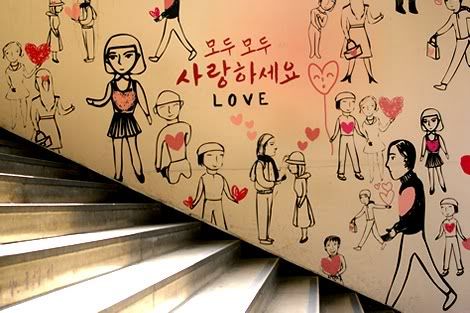 모두 모두
사랑하세요
LOVE